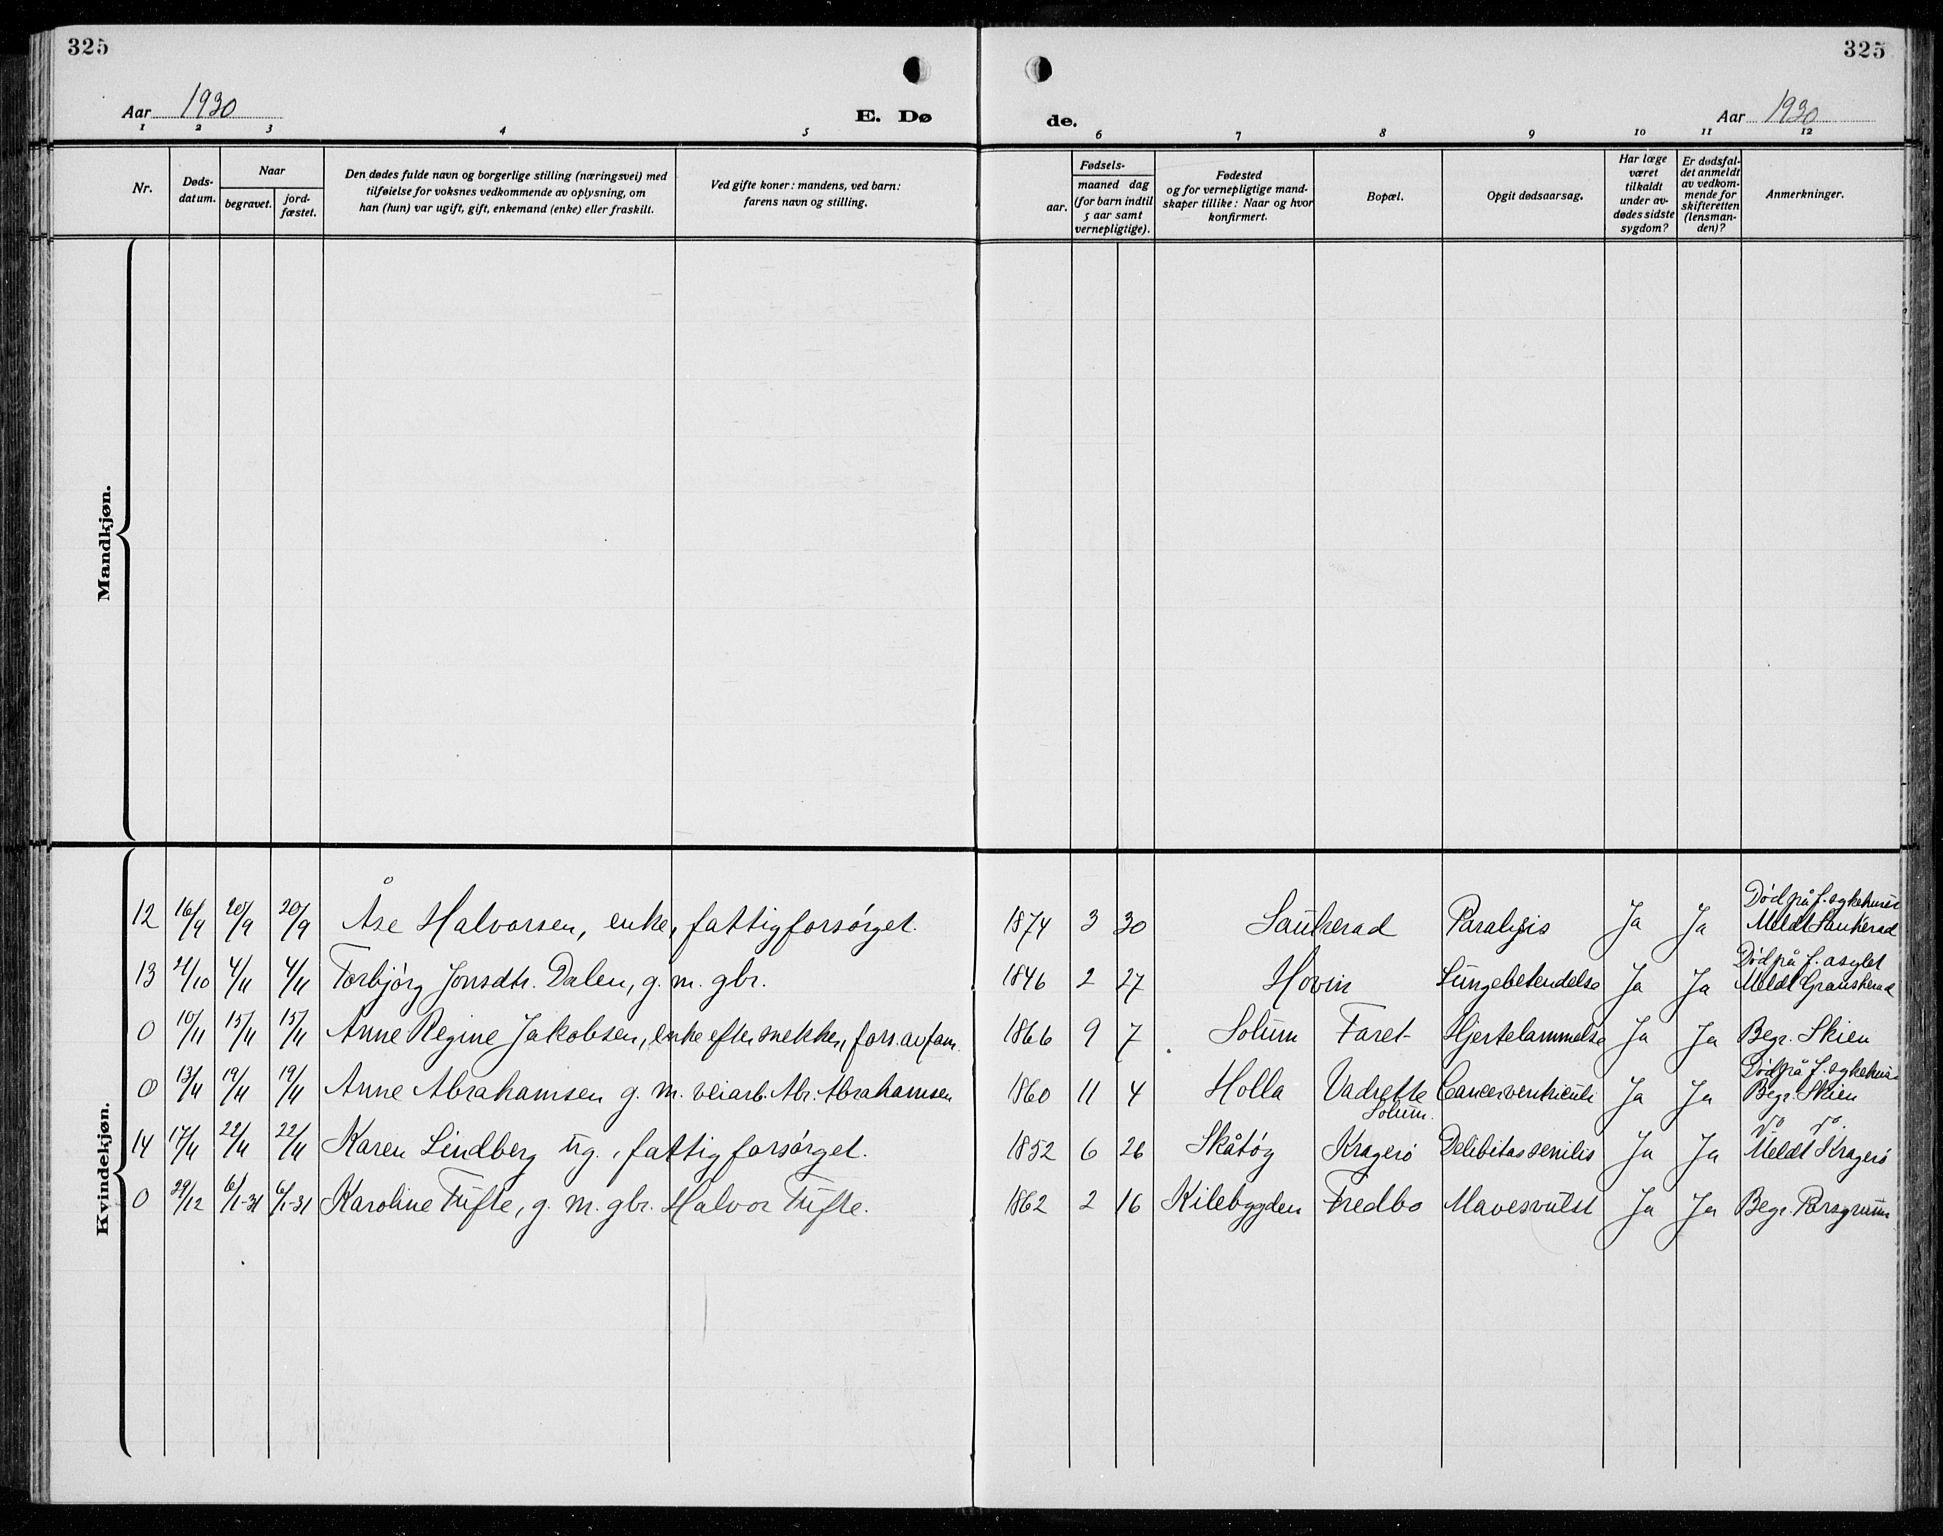 325
325
Aar 1930
E. Dø
de.
Aar 1930
1 2 3 4 5 6 7 8 9 10 11 12
Nr.
Døds-
datum.
Naar
begravet.
jord-
fæstet.
Den dødes fulde navn og borgerlige stilling (næringsvei) med
tilføielse for voksnes vedkommende av oplysning, om
han (hun) var ugift, gift, enkemand (enke) eller fraskilt.
Ved gifte koner: mandens, ved barn:
farens navn og stilling.
Fødsels-
aar.
maaned dag
(for barn indtil
5 aar samt
vernepligtige).
Fødested
og for vernepligtige mand-
skaper tillike: Naar og hvor
konfirmert.
Bopæl.
Opgit dødsaarsag.
Har læge
været
tilkaldt
under av-
dødes sidste
sygdom?
Er dødsfal-
det anmeldt
av vedkom-
mende for
skifteretten
(lensman-
den)?
Anmerkninger.
Mandkjøn.
Kvindekjøn.
Død på f. sykehuset
12 16/9 20/9 20/9 Åse Halvorsen, enke, fattigforsørget. 1874 3 30 Sauherad Paralysis Ja Ja Meldt Sauherad
Død på f. asylet
13 /10 4/11 4/11 Torbjørg Jonsdtr. Dalen, g. m. gbr. 1846 2 27 Hovin Lungebetendelse Ja Ja Meldt Gransherad
0 10/11 15/11 15/11 Anne Regine Jakobsen, enke efter snekker, fors. av fam. 1866 9 7 Solum Faret Hjertelammelse Ja Ja Begr. Skien
Død på f. sykehus
0 13/11 19/11 19/11 Anne Abrahamsen g. m. veiarb. Abr. Abrahamsen 1860 11 4 Holla Vadrette Cancer ventriculi Ja Ja Begr. Skien
Solum.
do do.
14 17/11 22/11 22/11 Karen Lindberg ug., fattigforsørget. 1852 6 26 Skåtøy Kragerø Delibitas senilis Ja Ja Meldt Kragerø
0 29/12 6/1-31 6/1-31 Karoline Tufte, g. m. gbr. Halvor Tufte. 1862 2 16 Kilebygden Fredbo Mavesvulst Ja Ja Begr. Porsgrunn